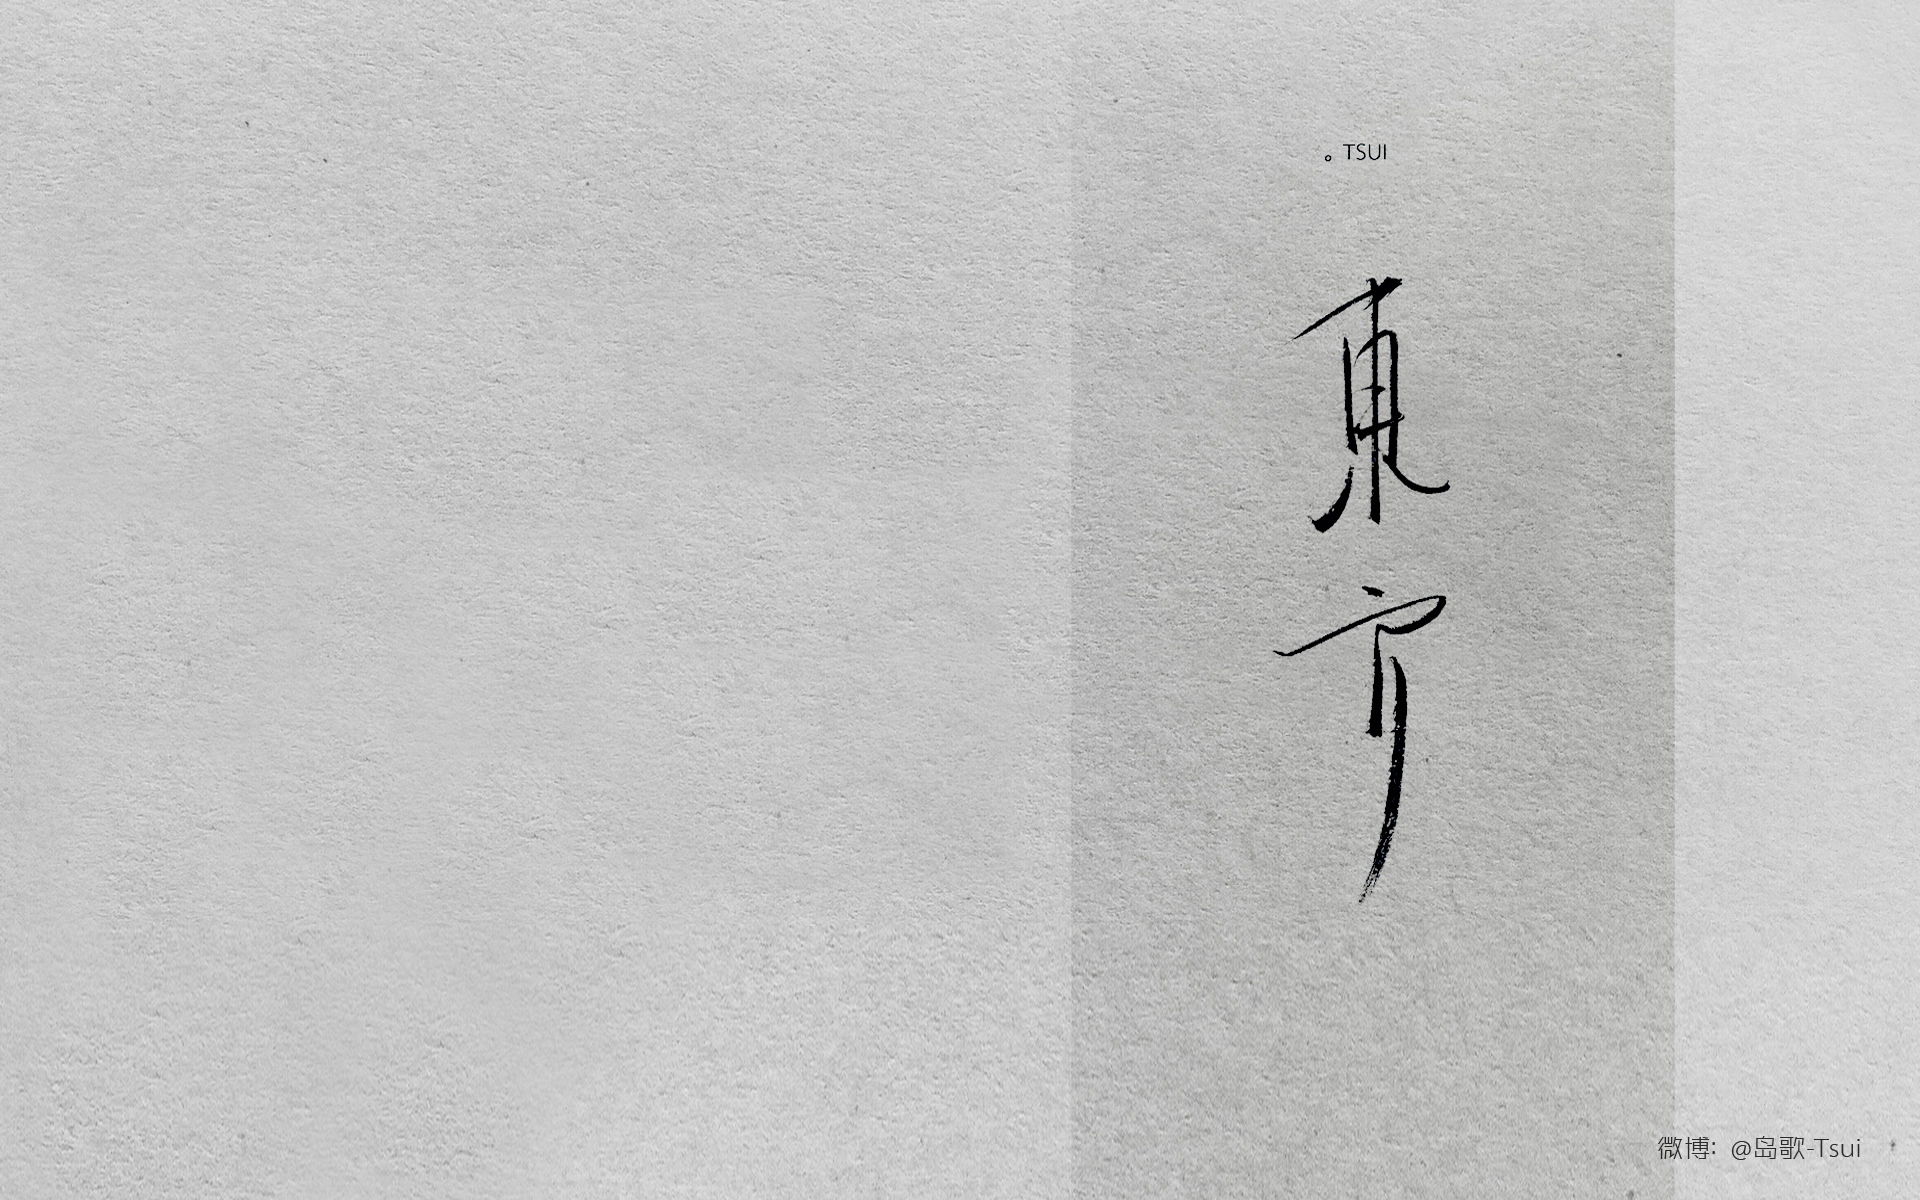 。TSUI
東方
微博: @岛歌-Tsui